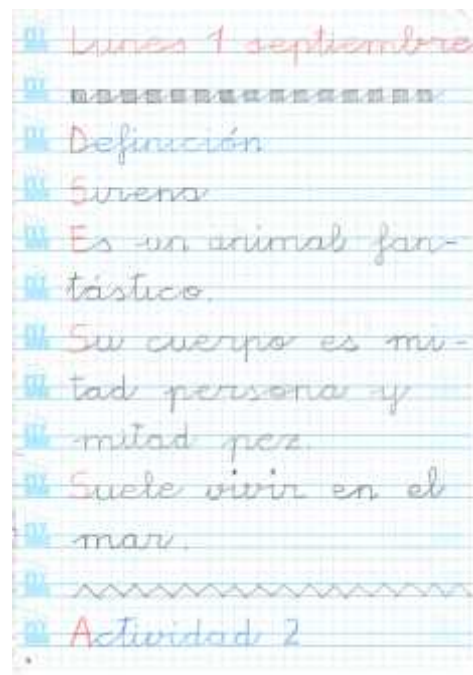 Lunes 1 septiembre
Definición
Sirena
Es un animal fan-
tástico.
Su cuerpo es mi-
tad persona y
mitad pez.
Suele vivir en el
mar.
Actividad 2